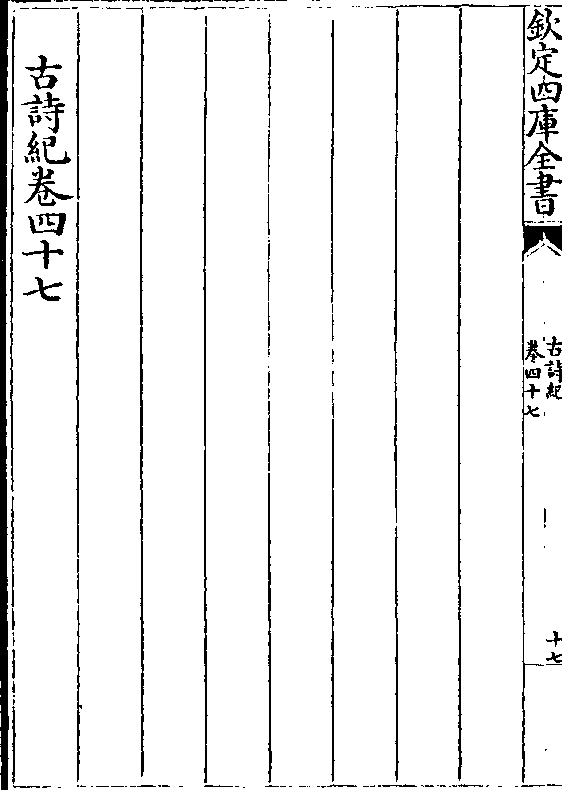 欽定四庫全書
古詩紀
卷四十七
十七
古詩紀卷四十七